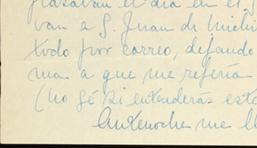 pasaban el día en el
van a S. Juan de
todo por correo, dejando
mas a que me refería
(no sé si entenderás esto
Antenoche me ll